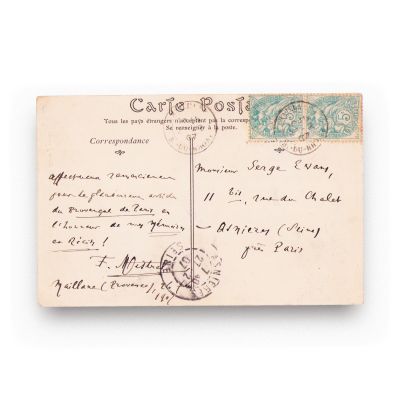 Carte Posta
Tous les pays étrangers n'acceptent pas la corresp
Se renseigner à la poste.
Correspondance
affectueux remerciement
pour le généreux article
du Provençal de Paris, en
l'honneur de mes Mémoires
et Récits!
F. Mistral
Maillane (Provence), 26
1907
Monsieur Serge Evans,
11 bis, rue du Chalet
Asnières (Seine)
près Paris
ASNIÈRES
SEINE
07